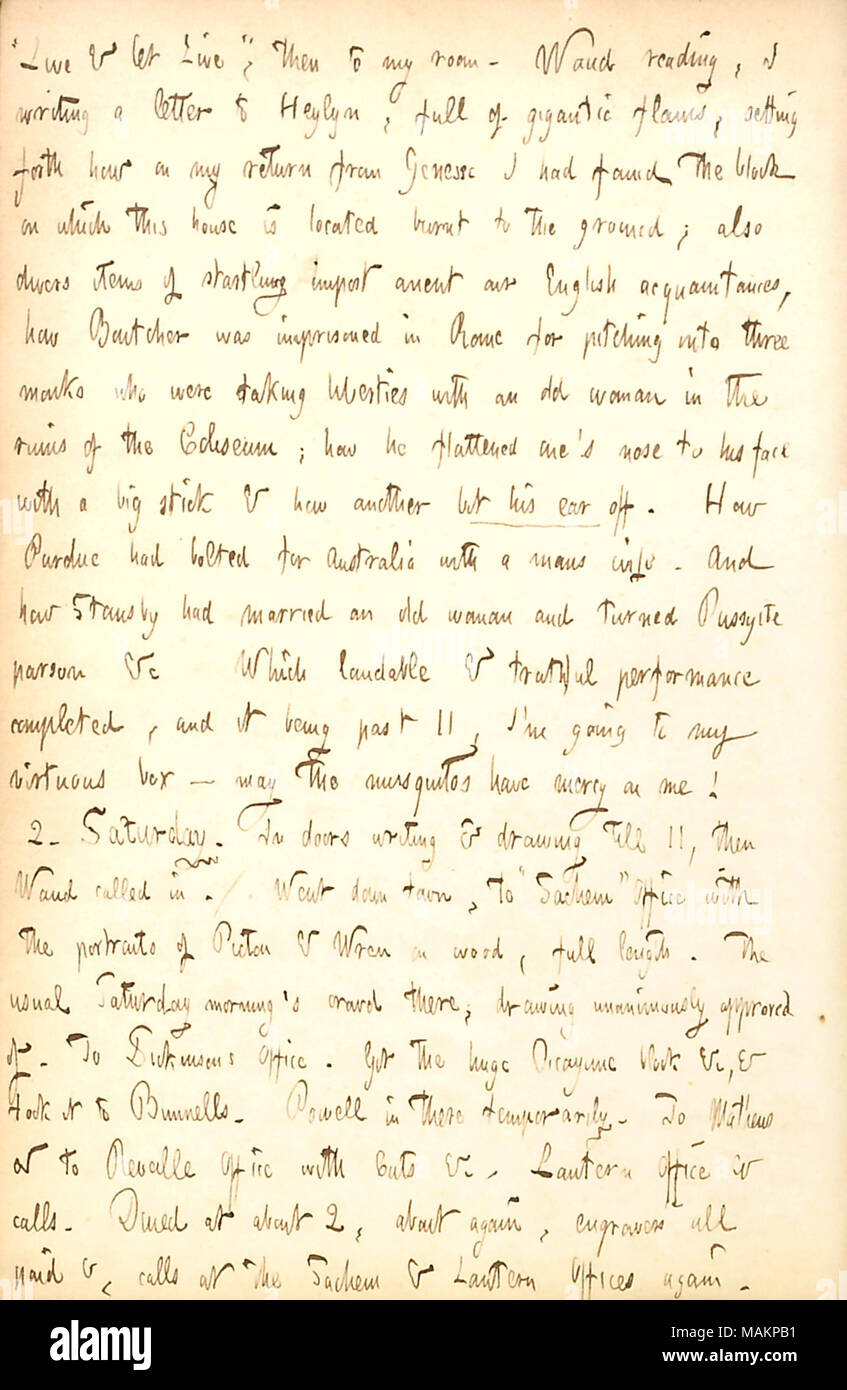 "Live & let Live", then to my room - Waud reading, I
writing a letter to Heylyn, full of gigantic flams, setting
forth how on my return from Genesse I had found the block
on which this house is located burnt to the ground; also
divers items of startling import anent our English acquaintances,
how Boutcher was imprisoned in Rome for pitching into three
monks who were taking liberties with an old woman in the
ruins of the Coliseum; how he flattened one's nose to his face
with a big stick & how another bit his ear off. How
Purdue had bolted for Australia with a mans wife - And
how Stansby had married an old woman and turned Puseyite
parson &c Which laudable & truthful performance
completed, and it being past 11, I'm going to my
virtuous bex — may the musquitos have mercy on me!
2 - Saturday. In doors writing & drawing till 11, then
Waud called in. Went down town, to "Sachem" Office with
the portraits of Picton & Wren on wood, full length. The
usual Saturday morning's crowd there, drawing unanimously approved
of - To Dickinsons Office. Got the huge Picayune block &c, &
took it to Bunnells - Powell in there temporarily - To Mathews
& to Reveille Office with Cuts &c - Lantern Office &
calls - Dined at about 2, about again, engravers all
paid &, calls at the Sachem & Lantern Offices again -
alamy
Image ID: MAKPB1
www.alamy.com